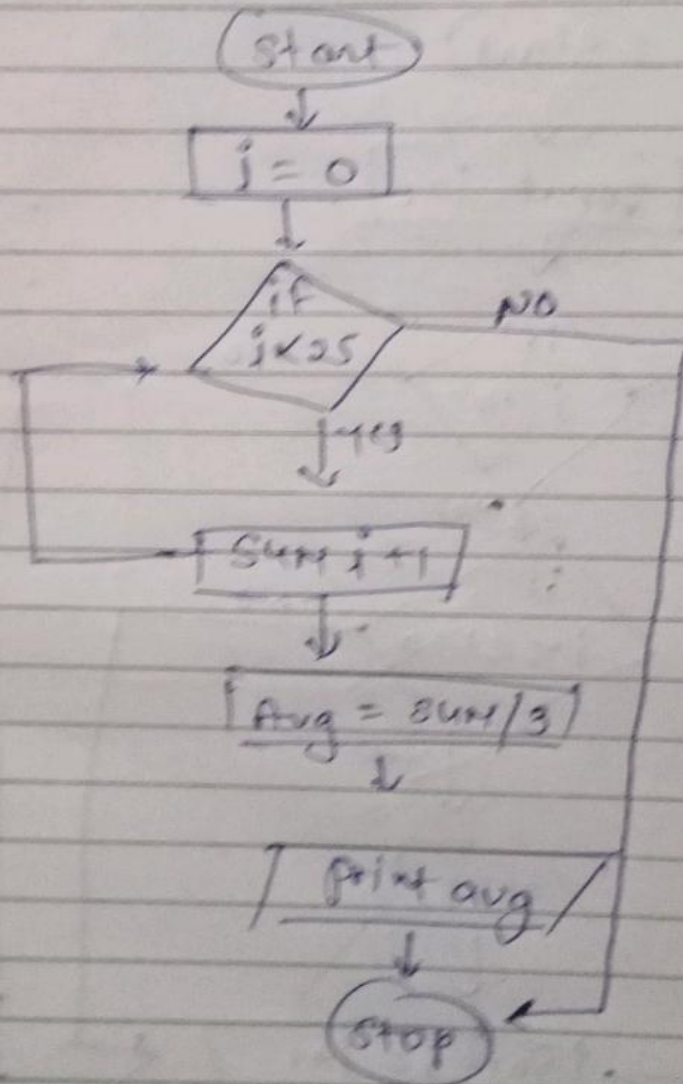 Start
j = 0
if
j<25
NO
yes
Sum j +1
Avg = Sum/3
Print avg
Stop